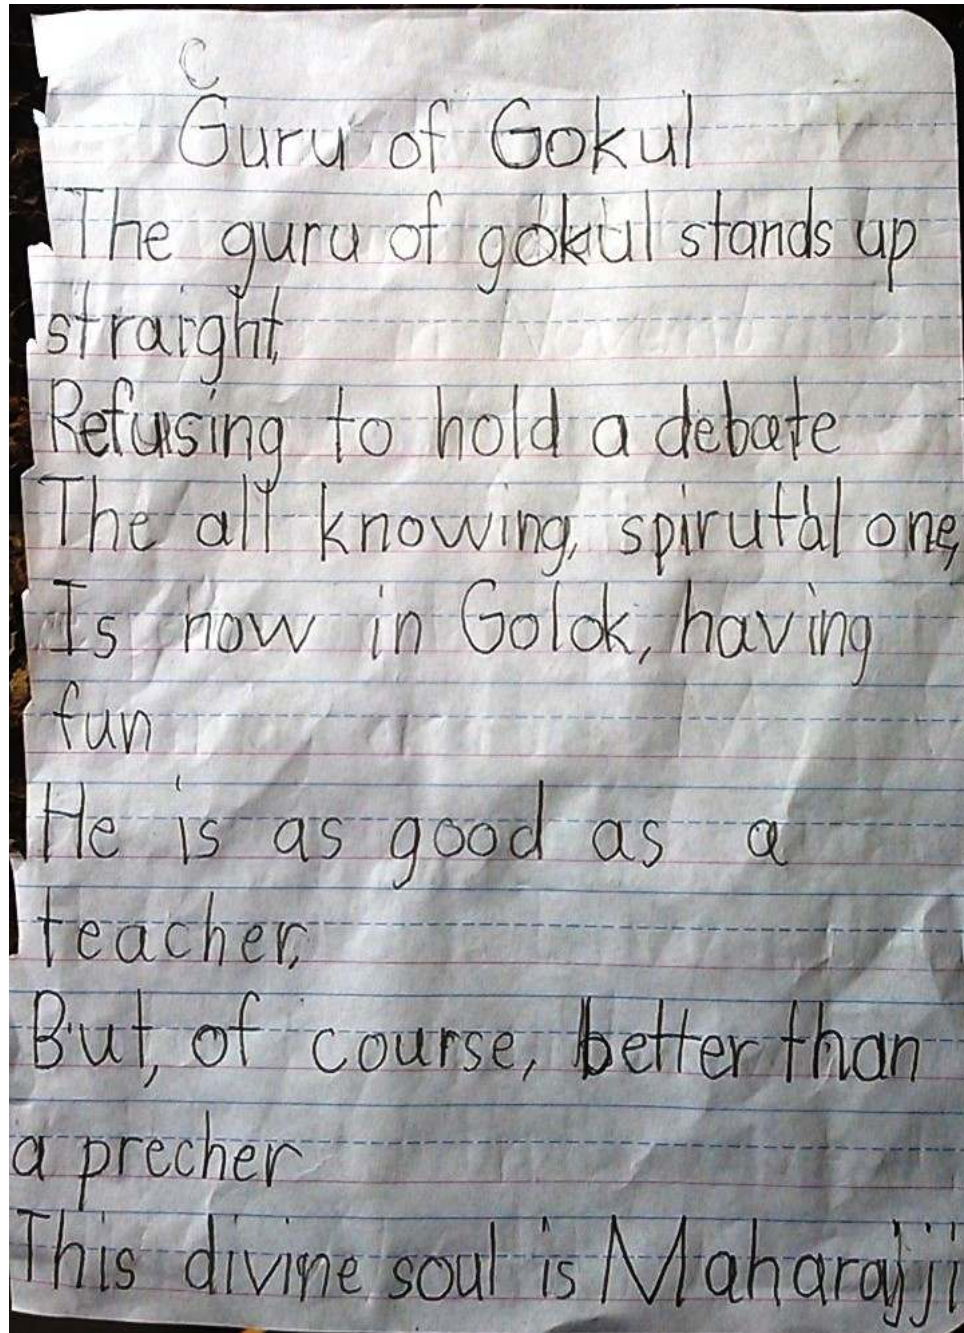 C
Guru of Gokul
The guru of gokul stands up
straight,
Refusing to hold a debate
The all knowing, spirutal one,
Is now in Golok, having
fun
He is as good as a
teacher,
But, of course, better than
a precher
This divine soul is Maharajji